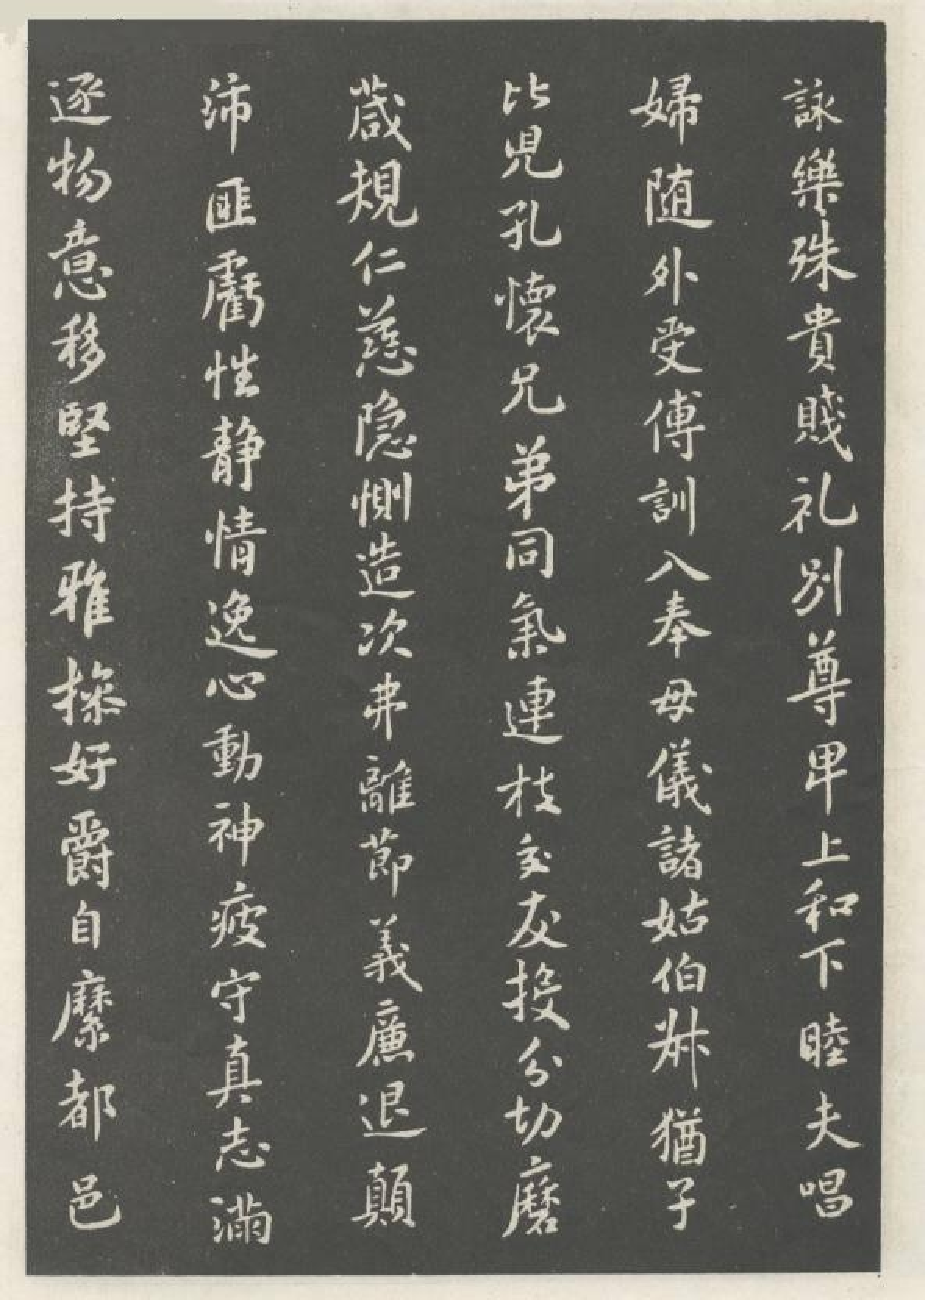 詠樂殊貴賤礼別尊卑上和下睦夫唱
婦随外受傅訓入奉母儀諸姑伯叔猶子
比児孔懷兄弟同氣連枝交友投分切磨
葴規仁慈隐惻造次弗離節義廉退顛
沛匪虧性静情逸心動神疲守真志滿
逐物意移堅持雅操好爵自縻都邑